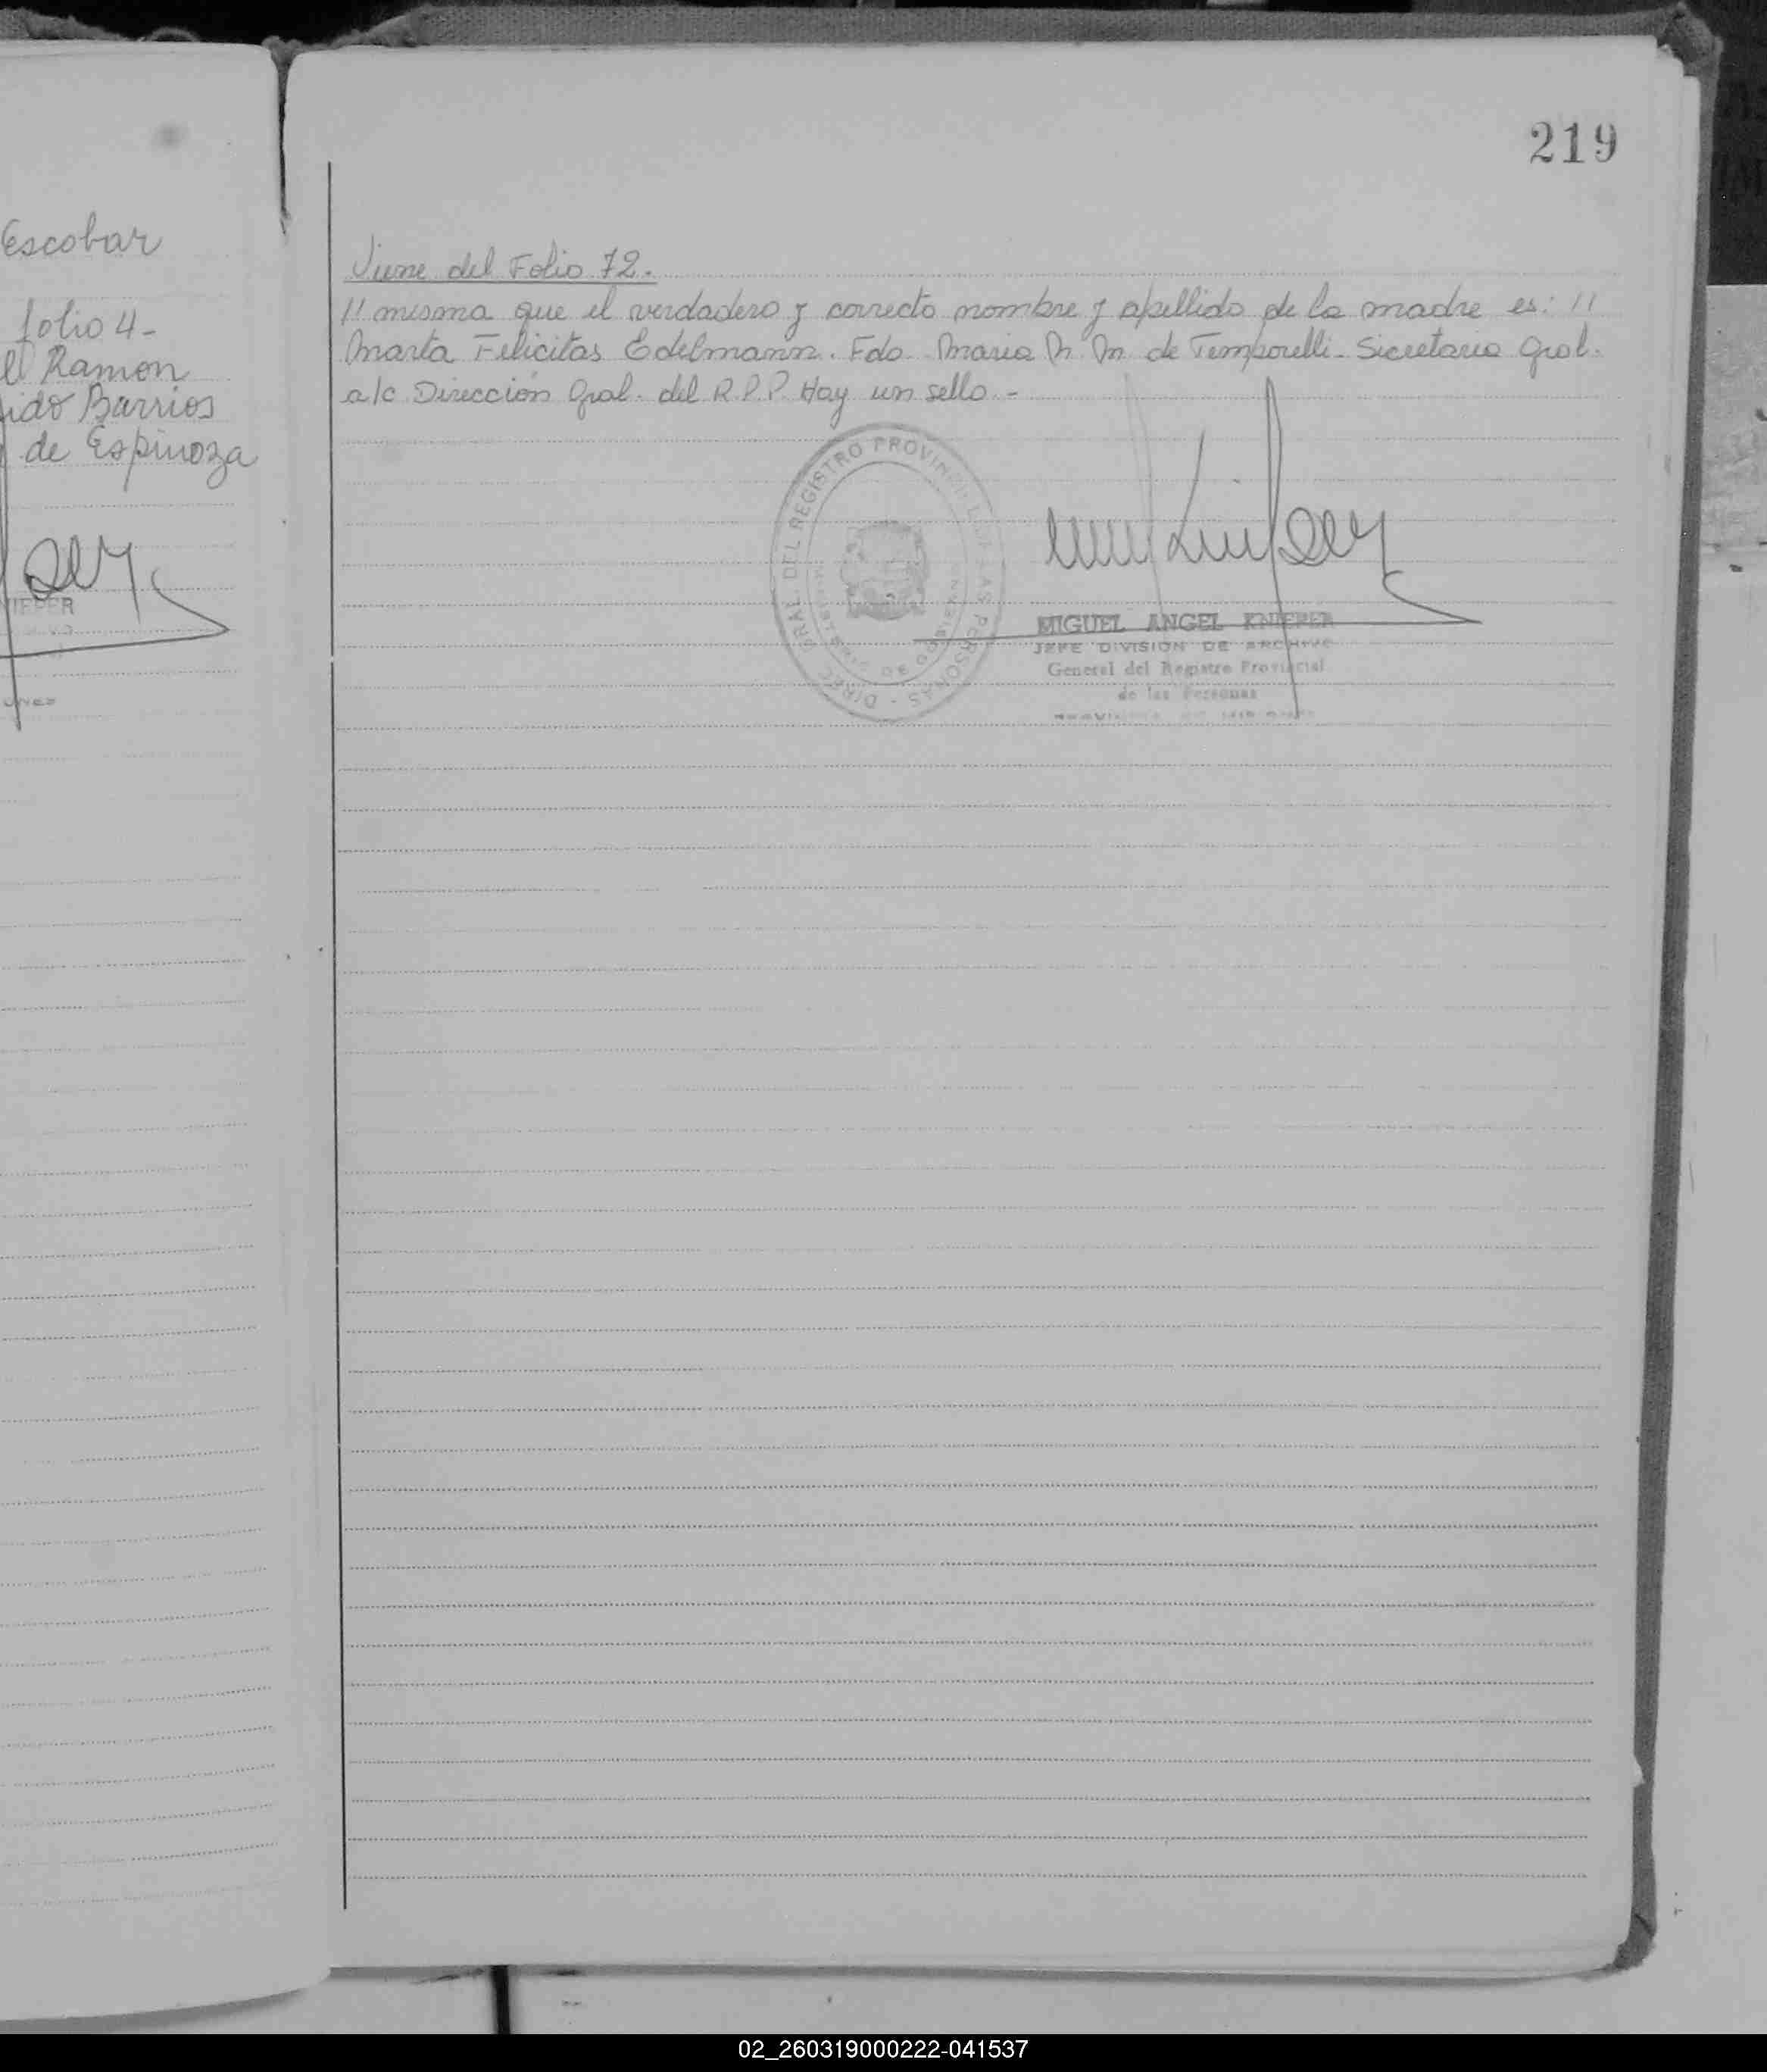 Escobar
folio 4-
Ramon
Barrios
de Espinoza
NIEPER
219
Viene del Folio 72.
// misma que el verdadero y correcto nombre y apellido de la madre es: //
Marta Felicitas Edelmann. Fdo. Maria M. M. de Temporelli - Secretaria Gral.
a/c Dirección Gral. del R.P.P. Hay un sello.-
DIREC. GRAL. DEL REGISTRO PROVINCIAL DE LAS PERSONAS
MIGUEL ANGEL KNIEPER
JEFE DIVISION DE ARCHIVO
General del Registro Provincial
de las Personas
02_260319000222-041537